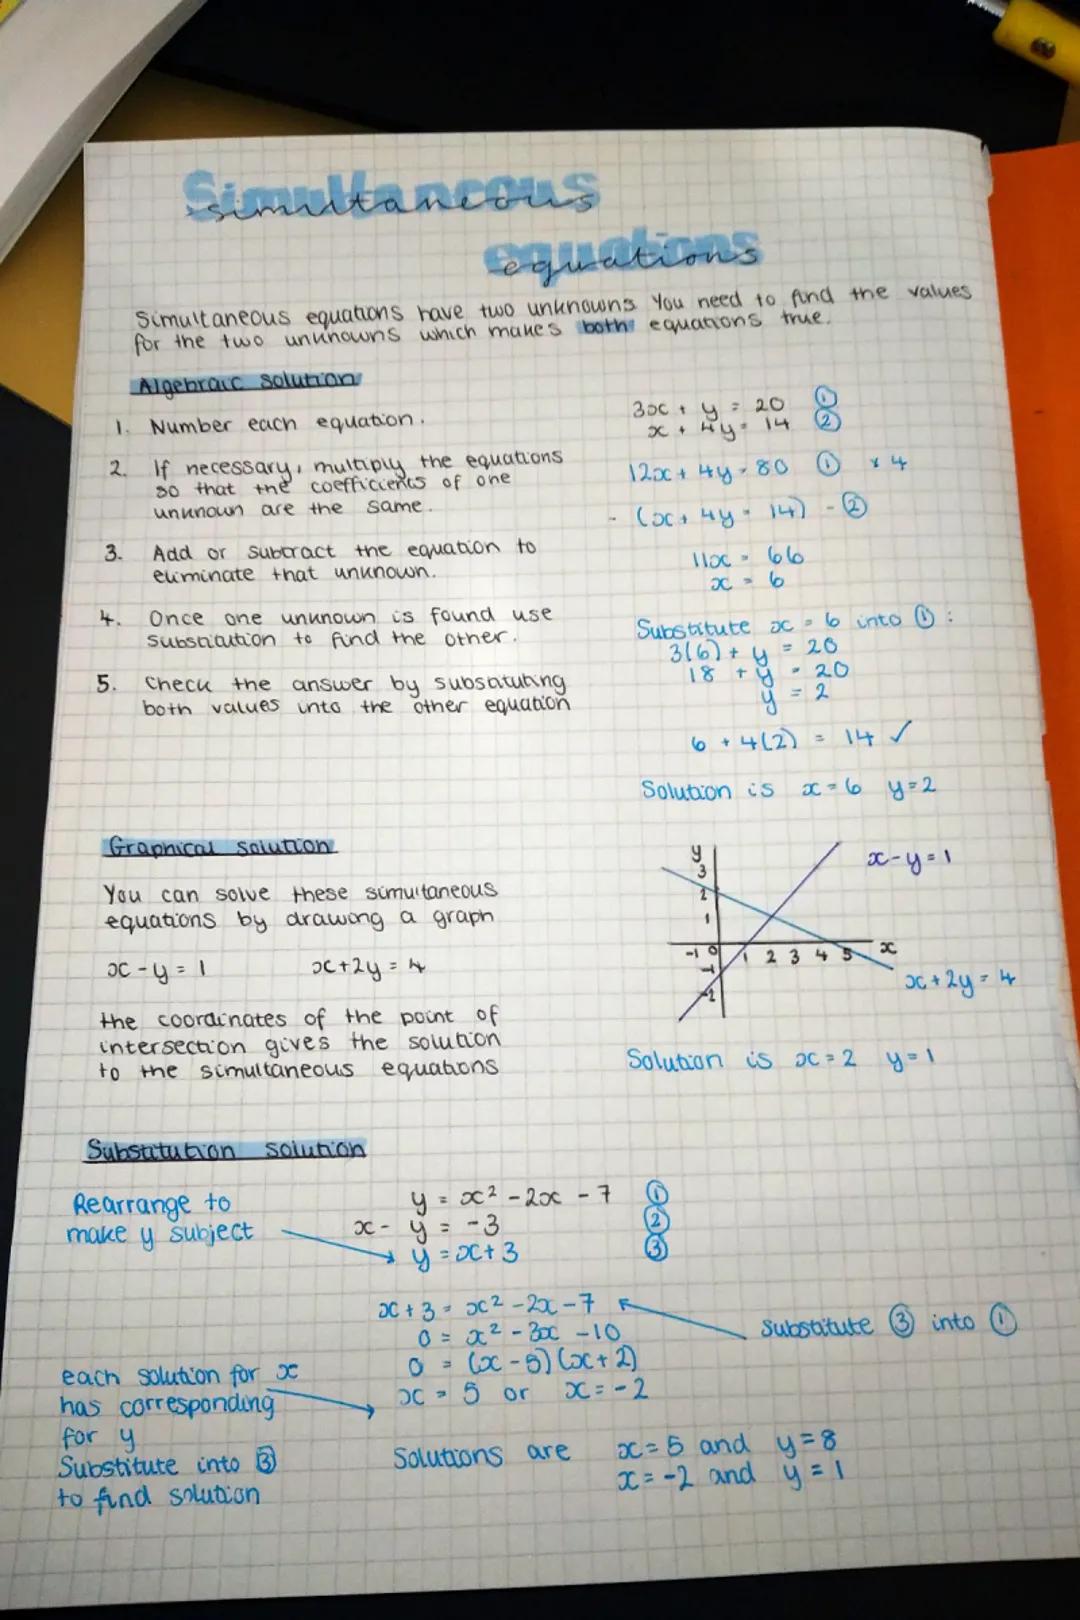 Simultaneous
simultaneous
equations
equations
Simultaneous equations have two unknowns You need to find the values
for the two unknowns which makes both equations true.
Algebraic solution
1. Number each equation.
3x + y = 20 ①
x + 4y = 14 ②
2. If necessary, multiply the equations
so that the coefficients of one
unknown are the same.
12x + 4y = 80 ① × 4
- (x + 4y = 14) - ②
3. Add or subtract the equation to
eliminate that unknown.
11x = 66
x = 6
4. Once one unknown is found use
substitution to find the other.
Substitute x = 6 into ① :
3(6) + y = 20
18 + y = 20
y = 2
5. Check the answer by substituting
both values into the other equation
6 + 4(2) = 14 ✓
Solution is x = 6 y = 2
Graphical solution
You can solve these simultaneous
equations by drawing a graph
x - y = 1 x + 2y = 4
the coordinates of the point of
intersection gives the solution
to the simultaneous equations
y
3
2
1
-1 0 1 2 3 4 5 x
-1
-2
x - y = 1
x + 2y = 4
Solution is x = 2 y = 1
Substitution solution
Rearrange to
make y subject
y = x² - 2x - 7 ①
x - y = -3 ②
y = x + 3 ③
x + 3 = x² - 2x - 7
0 = x² - 3x - 10
0 = (x - 5)(x + 2)
x = 5 or x = -2
Substitute ③ into ①
each solution for x
has corresponding
for y
Substitute into ③
to find solution
Solutions are x = 5 and y = 8
x = -2 and y = 1